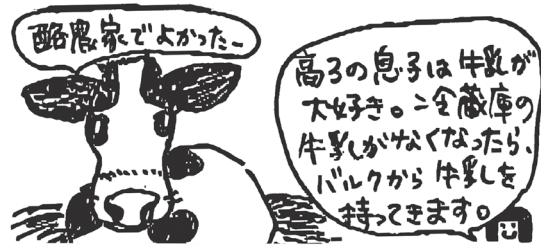 酪農家でよかったー
高3の息子は牛乳が
大好き。冷蔵庫の
牛乳がなくなったら、
バルクから牛乳を
持ってきます。